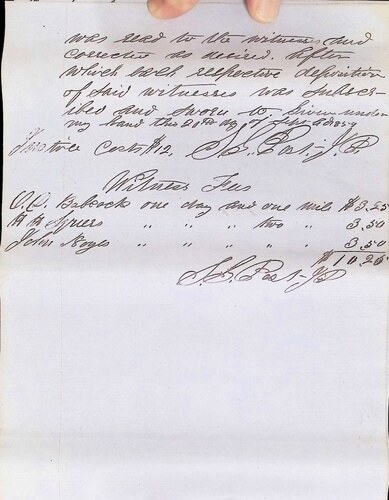 was read to the witness and
corrected as desired. After
which each respective deposition
of said witnesses was subscri-
bed and sworn to. Given under
my hand this 20th day of
Justice Costs $12. S. G. Post J.P.
Witness Fees
Babcock one day and one mile $3.25
Spiers " " " two " 3.50
John " " " " " 3.50
$10.25
S. G. Post J.P.